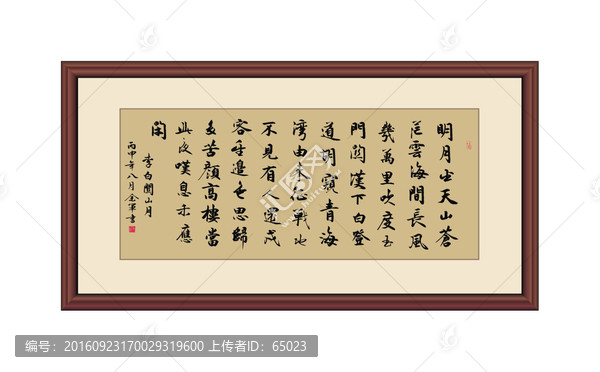 明月出天山蒼
茫雲海間長風
幾萬里吹度玉
門關漢下白登
道胡窺青海
湾由来征戰地
不見有人還戍
客望邊色思歸
多苦顏高樓當
此夜嘆息未應
閑
李白關山月
丙申年八月金軍書
汇图网
编号：20160923170029319600 上传者ID：65023